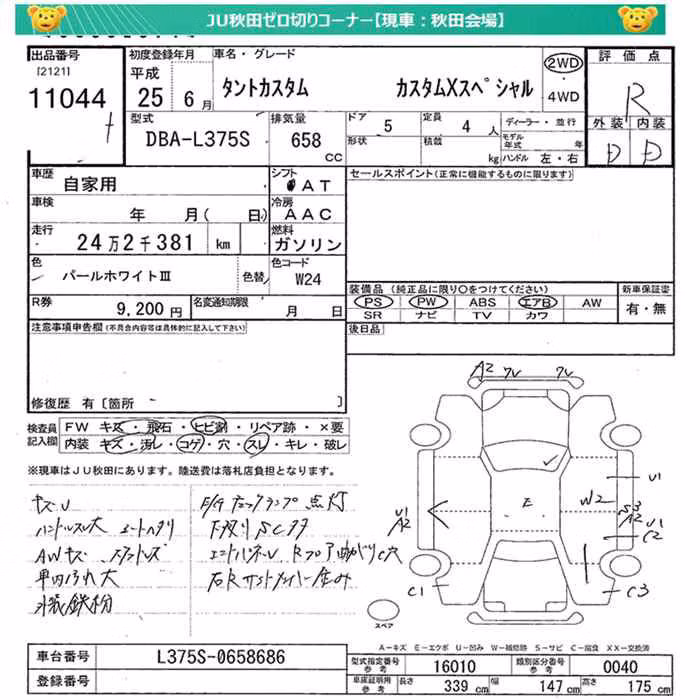 JU秋田ゼロ切りコーナー【現車：秋田会場】
出品番号
[2121]
11044
初度登録年月
平成
25 6月
車名・グレード
タントカスタム カスタムXスペシャル
2WD
・4WD
評価点
R
外装 内装
D D
型式
DBA-L375S
排気量
658
CC
ドア
5
形状
定員
4 人
積載
kg
ディーラー・並行
モデル年式 年
ハンドル 左・右
車歴
自家用
シフト
AT
車検
年 月( 日)
冷房
AAC
走行
24万2千381 km
燃料
ガソリン
色
パールホワイトⅢ
色替
色コード
W24
R券
9,200円
名変通知期限
月 日
セールスポイント(正常に機能するものに限ります)
装備品 (純正品に限り○をつけてください)
PS PW ABS エアB AW
SR ナビ TV カワ
新車保証書
有・無
注意事項申告欄(不具合内容等は具体的に記入して下さい)
後日品
修復歴 有〔箇所 〕
検査員
記入欄
FW キズ・飛石・ヒビ割・リペア跡・×要
内装 キズ・汚レ・コゲ・穴・スレ・キレ・破レ
※現車はJU秋田にあります。陸送費は落札店負担となります。
キズU
ハンドルスレ大 シートヘタリ
AWキズ
車内汚れ大
外装鉄粉
E/Gチェックランプ点灯
下廻りSCサタ
A2
U1
A2
E
W2
U1
S3
A2
U1
C2
C1
C3
スペア
A-キズ E-エクボ U-凹み W-補修跡 S-サビ C-腐食 XX-交換済
車台番号
L375S-0658686
登録番号
型式指定番号
参考
16010
類別区分番号
参考
0040
車庫証明用
参考
長さ
339 cm
幅
147 cm
高さ
175 cm